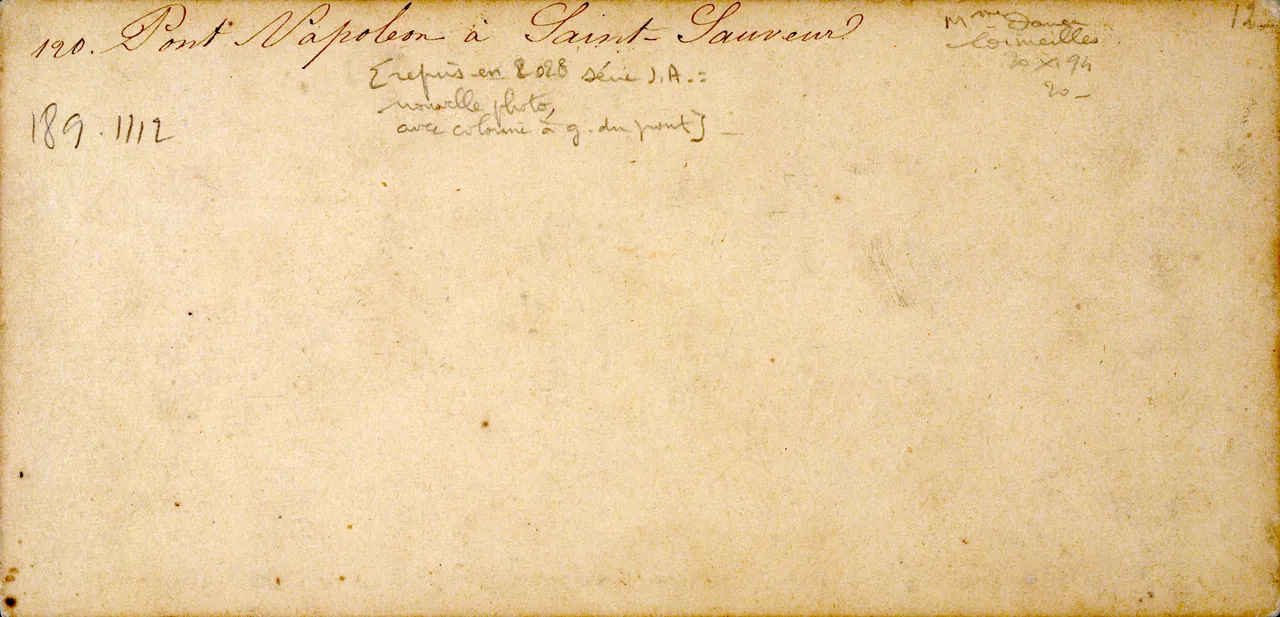 120. Pont Napoleon à Saint-Sauveur
[repris en 2028 série J.A.=
nouvelle photo,
avec colonne à g. du pont]
189.1112
Mme
Cormeilles
20 XI 94
20-